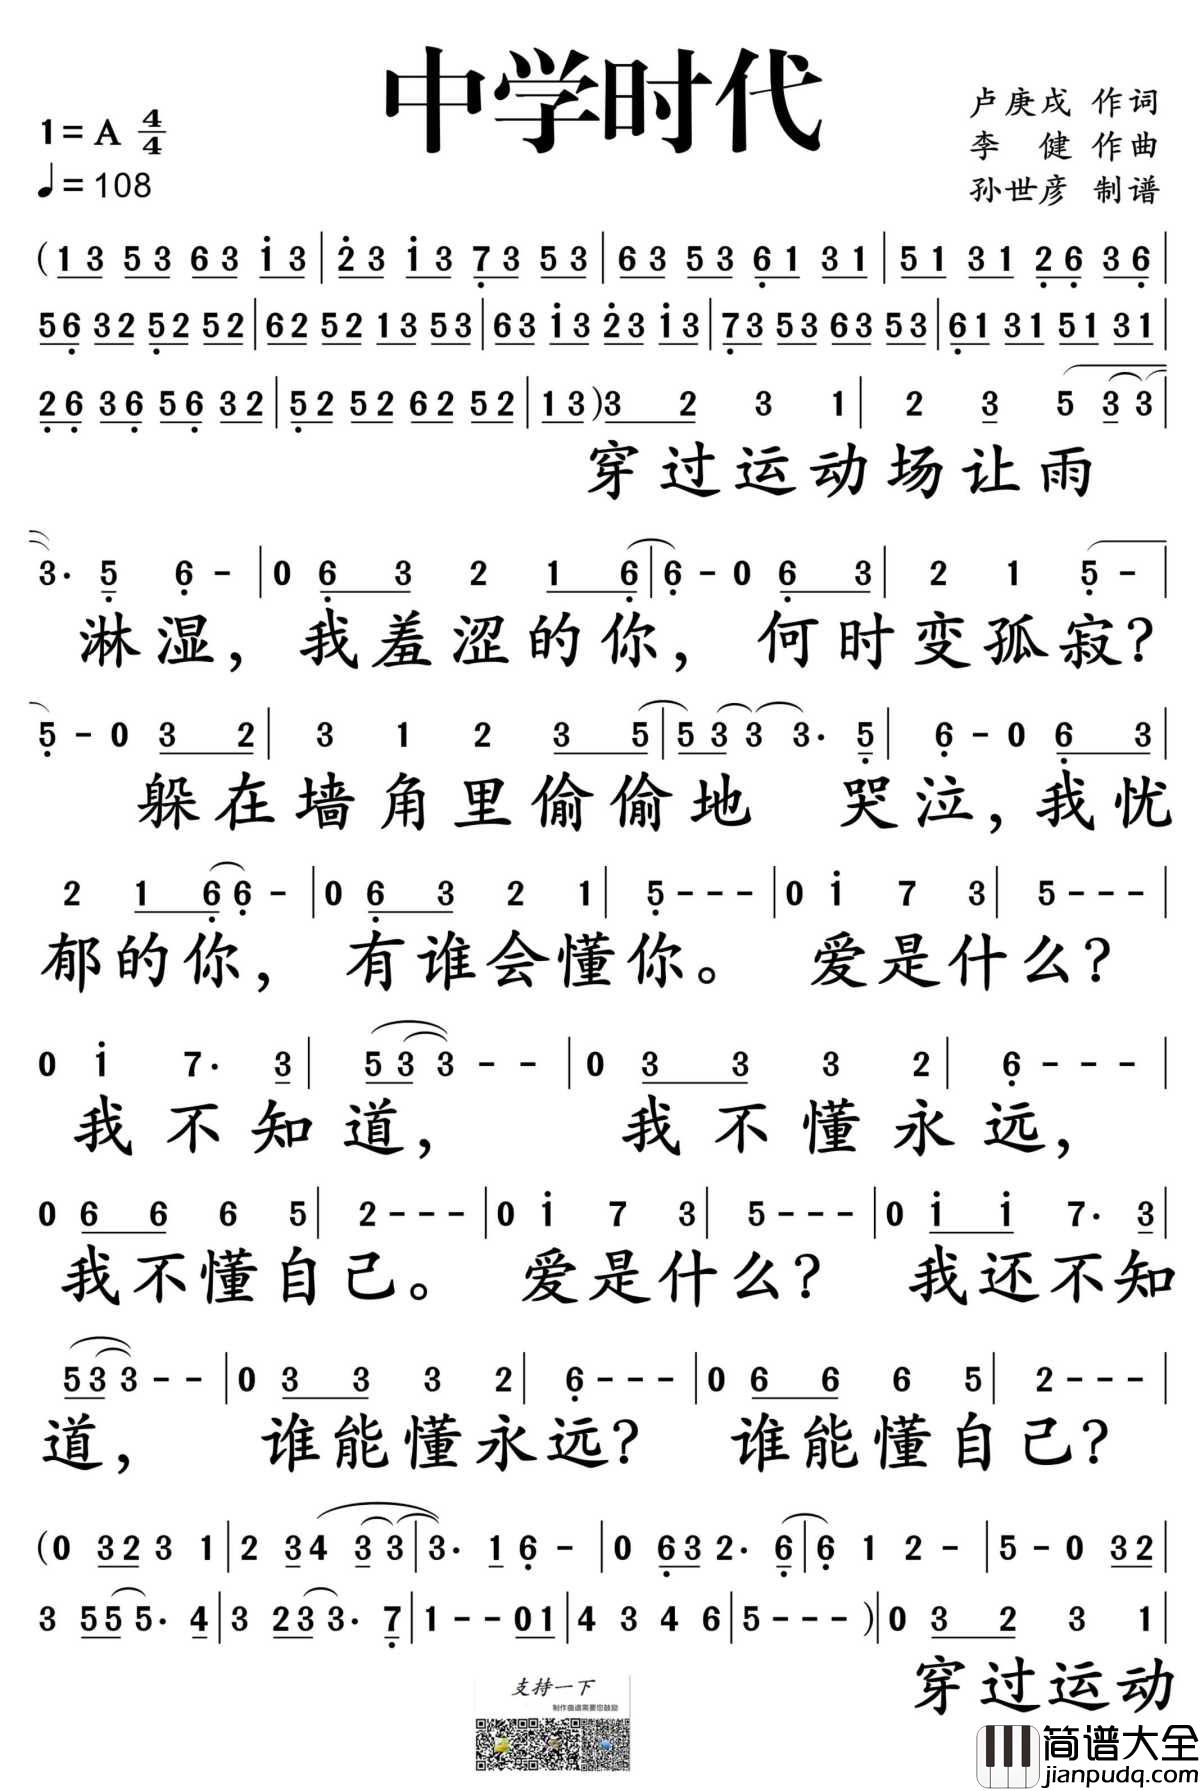 中学时代
1=A 4/4
♩=108
卢庚戌 作词
李 健 作曲
孙世彦 制谱
(1 3 5 3 6 3 i 3 | 2 3 i 3 7 3 5 3 | 6 3 5 3 6 1 3 1 | 5 1 3 1 2 6 3 6 |
5 6 3 2 5 2 5 2 | 6 2 5 2 1 3 5 3 | 6 3 i 3 2 3 i 3 | 7 3 5 3 6 3 5 3 | 6 1 3 1 5 1 3 1 |
2 6 3 6 5 6 3 2 | 5 2 5 2 6 2 5 2 | 1 3 )3 2 3 1 | 2 3 5 3 3 |
穿过运动场让雨
3· 5 6 - | 0 6 3 2 1 6 | 6 - 0 6 3 | 2 1 5 - |
淋湿,我羞涩的你,何时变孤寂?
5 - 0 3 2 | 3 1 2 3 5 | 5 3 3 3· 5 | 6 - 0 6 3 |
躲在墙角里偷偷地 哭泣,我忧
2 1 6 6 - | 0 6 3 2 1 | 5 - - - | 0 i 7 3 | 5 - - - |
郁的你,有谁会懂你。爱是什么?
0 i 7· 3 | 5 3 3 - - | 0 3 3 3 2 | 6 - - - |
我不知道,我不懂永远,
0 6 6 6 5 | 2 - - - | 0 i 7 3 | 5 - - - | 0 i i 7· 3 |
我不懂自己。爱是什么?我还不知
5 3 3 - - | 0 3 3 3 2 | 6 - - - | 0 6 6 6 5 | 2 - - - |
道,谁能懂永远?谁能懂自己?
(0 3 2 3 1 | 2 3 4 3 3 | 3· 1 6 - | 0 6 3 2· 6 | 6 1 2 - | 5 - 0 3 2 |
3 5 5 5· 4 | 3 2 3 3· 7 | 1 - - 0 1 | 4 3 4 6 | 5 - - - )| 0 3 2 3 1 |
穿过运动
支持一下
制作曲谱需要您鼓励
简谱大全
jianpudq.com